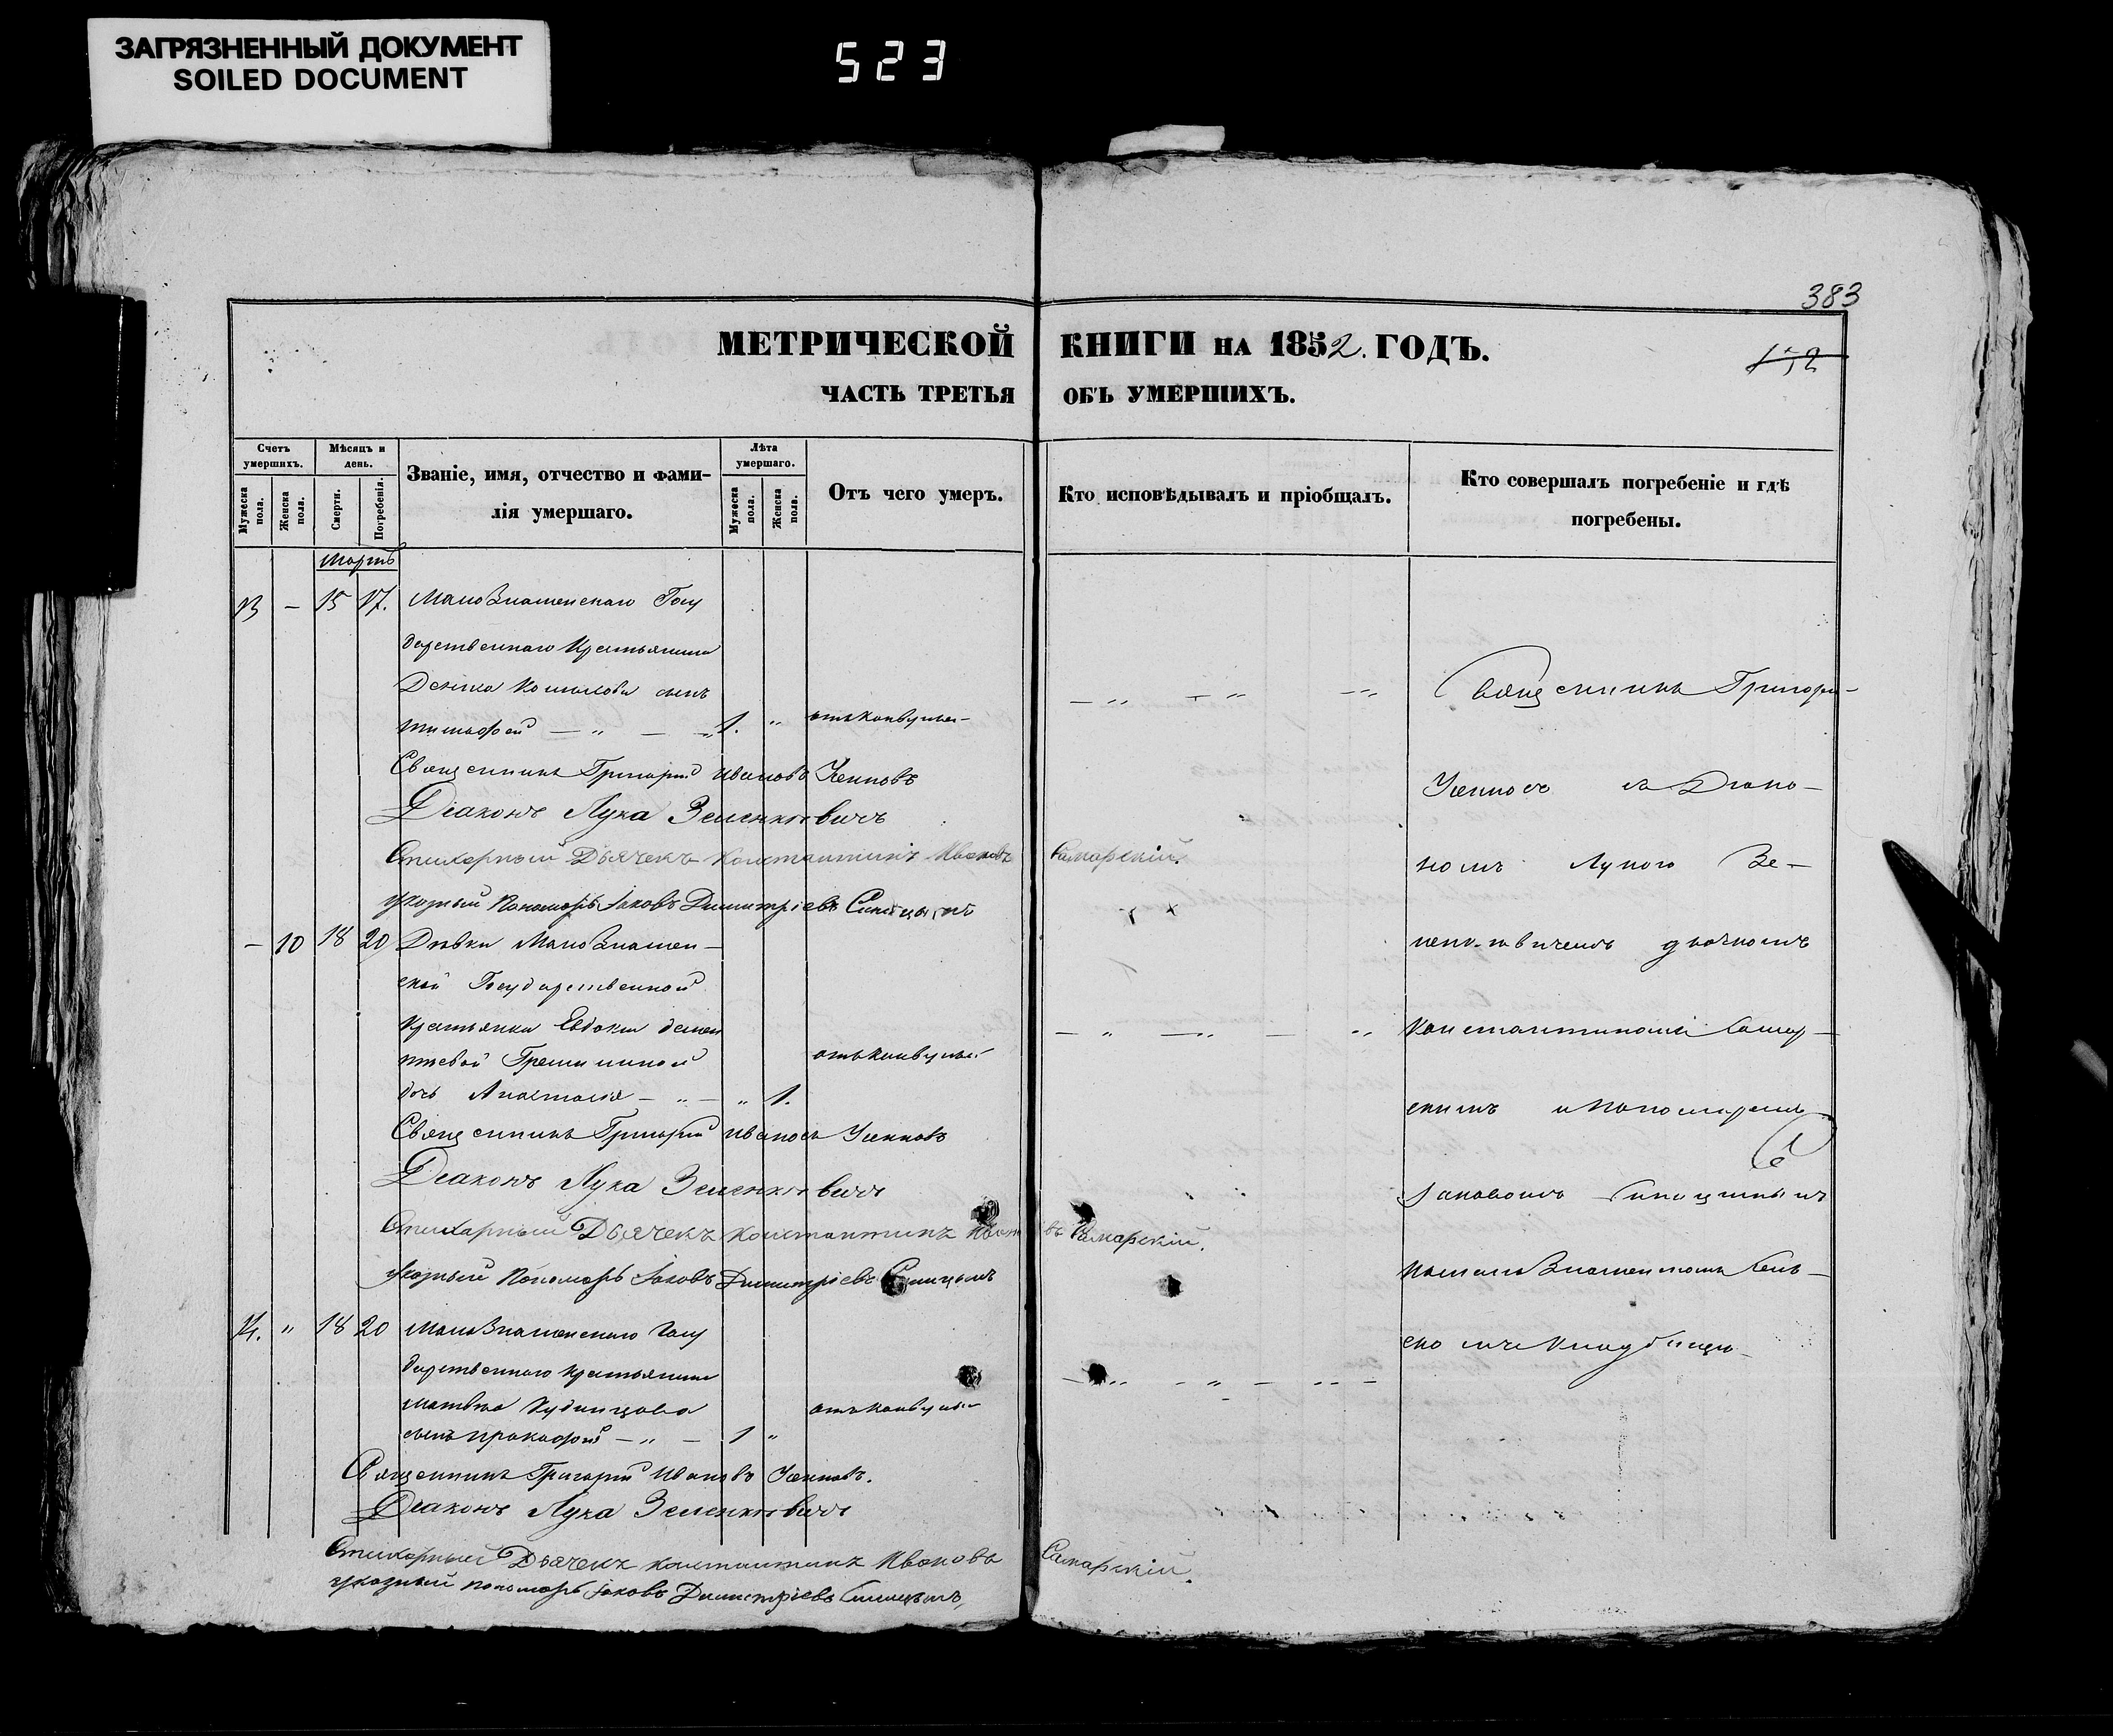 ЗАГРЯЗНЕННЫЙ ДОКУМЕНТ
SOILED DOCUMENT
523
383
МЕТРИЧЕСКОЙ КНИГИ НА 1852. ГОДЪ.
152
ЧАСТЬ ТРЕТЬЯ ОБЪ УМЕРШИХЪ.
Счетъ умершихъ.
Мужеска пола.
Женска пола.
Мѣсяцъ и день.
Смерти.
Погребенія.
Званіе, имя, отчество и фамилія умершаго.
Лѣта умершаго.
Мужеска пола.
Женска пола.
Отъ чего умеръ.
Кто исповѣдывалъ и пріобщалъ.
Кто совершалъ погребеніе и гдѣ погребены.
Мартъ
13 — 15 17. МалоЗнаменскаго Госу
дарственнаго Крестьянина
сынъ
Тимофей — „ — 1. „ отъ конвульс—
Священникъ Григорій Ивановъ
Діаконъ Лука Зеленкевичъ
Стихарный Дьячекъ Константинъ Ивановъ Самарскій.
Указный Пономарь Іаковъ Димитріевъ Синицынъ
— 10 18 20 Дѣвки МалоЗнамен—
ской Государственной
Крестьянки Евдокіи Демен
тьевой отъ конвульс
дочь Анастасія — „ — „ 1.
Священникъ Григорій Ивановъ
Діаконъ Лука Зеленкевичъ
Стихарный Дьячекъ Константинъ Ивановъ Самарскій.
Указный Пономарь Іаковъ Димитріевъ Синицынъ
14. „ 18 20 МалоЗнаменскаго Госу
дарственнаго Крестьянина
Матвѣя Кудинцова отъ конвульс
сынъ Прокофій — „ — 1 „
Священникъ Григорій Ивановъ
Діаконъ Лука Зеленкевичъ
Стихарный Дьячекъ Константинъ Ивановъ Самарскій.
Указный Пономарь Іаковъ Димитріевъ Синицынъ
Священникъ Григорі—
съ Діако—
номъ Лукою Зе—
ленкевичемъ дьячкомъ
Константиномъ Самар—
скимъ и Пономаремъ
Іаковомъ Синицинымъ
Знаменскомъ Сель—
скомъ Кладбищѣ